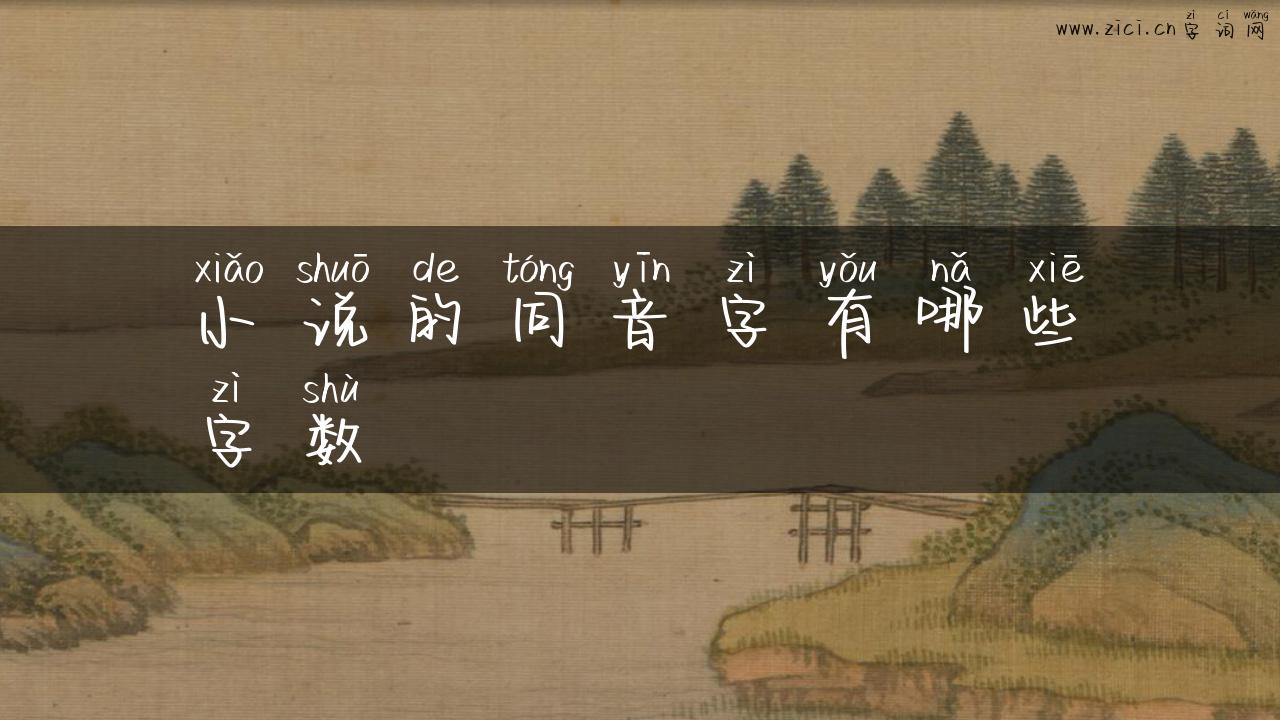 zì cí wǎng
www.zici.cn 字 词 网
xiǎo shuō de tóng yīn zì yǒu nǎ xiē
小 说 的 同 音 字 有 哪 些
zì shù
字 数